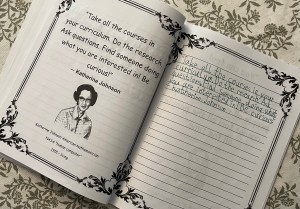 "Take all the courses in
your curriculum. Do the research.
Ask questions. Find someone doing
what you are interested in! Be
curious!"
- Katherine Johnson
Katherine Johnson American mathematician
Take all the courses in your
curriculum. Do the research. Ask
questions. Find someone doing what
you are interested in! Be curious!
Katherine Johnson